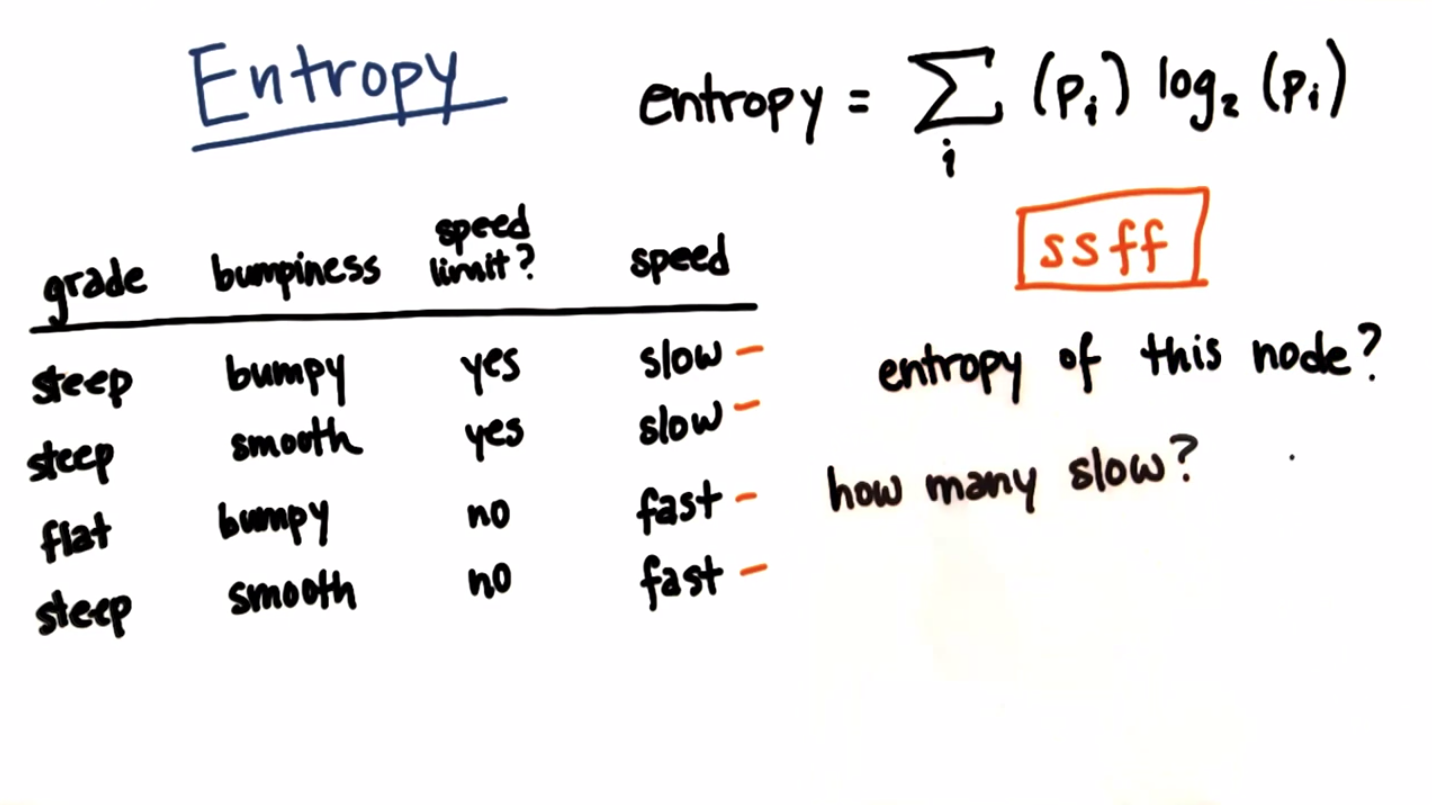 Entropy
entropy = Σ (pᵢ) log₂ (pᵢ)
i
ssff
entropy of this node?
how many slow?
grade bumpiness speed limit? speed
steep bumpy yes slow –
steep smooth yes slow –
flat bumpy no fast –
steep smooth no fast –